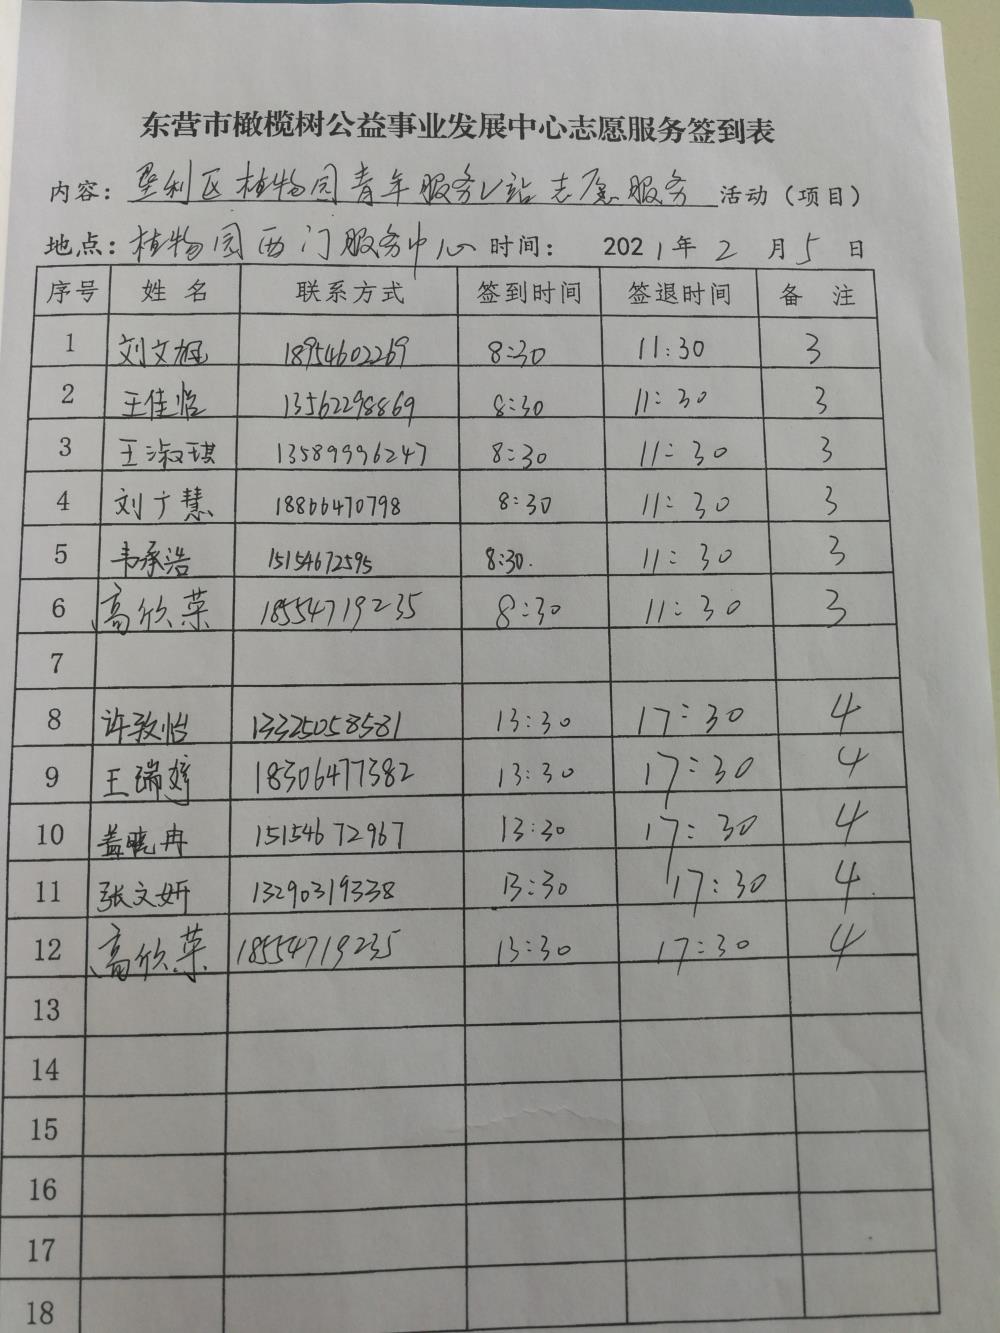 东营市橄榄树公益事业发展中心志愿服务签到表
内容：垦利区植物园青年服务V站志愿服务 活动（项目）
地点：植物园西门服务中心 时间： 2021年2月5日
序号 姓名 联系方式 签到时间 签退时间 备注
1 刘文 18954602269 8:30 11:30 3
2 王佳怡 13562298869 8:30 11:30 3
3 王淑琪 13589996247 8:30 11:30 3
4 刘广慧 18866470798 8:30 11:30 3
5 韦承浩 15154672595 8:30. 11:30 3
6 高欣菜 18554719235 8:30 11:30 3
7
8 许致怡 13325058581 13:30 17:30 4
9 王瑞婷 18306477382 13:30 17:30 4
10 盖晓冉 15154672967 13:30 17:30 4
11 张文妍 13290319338 13:30 17:30 4
12 高欣菜 18554719235 13:30 17:30 4
13
14
15
16
17
18